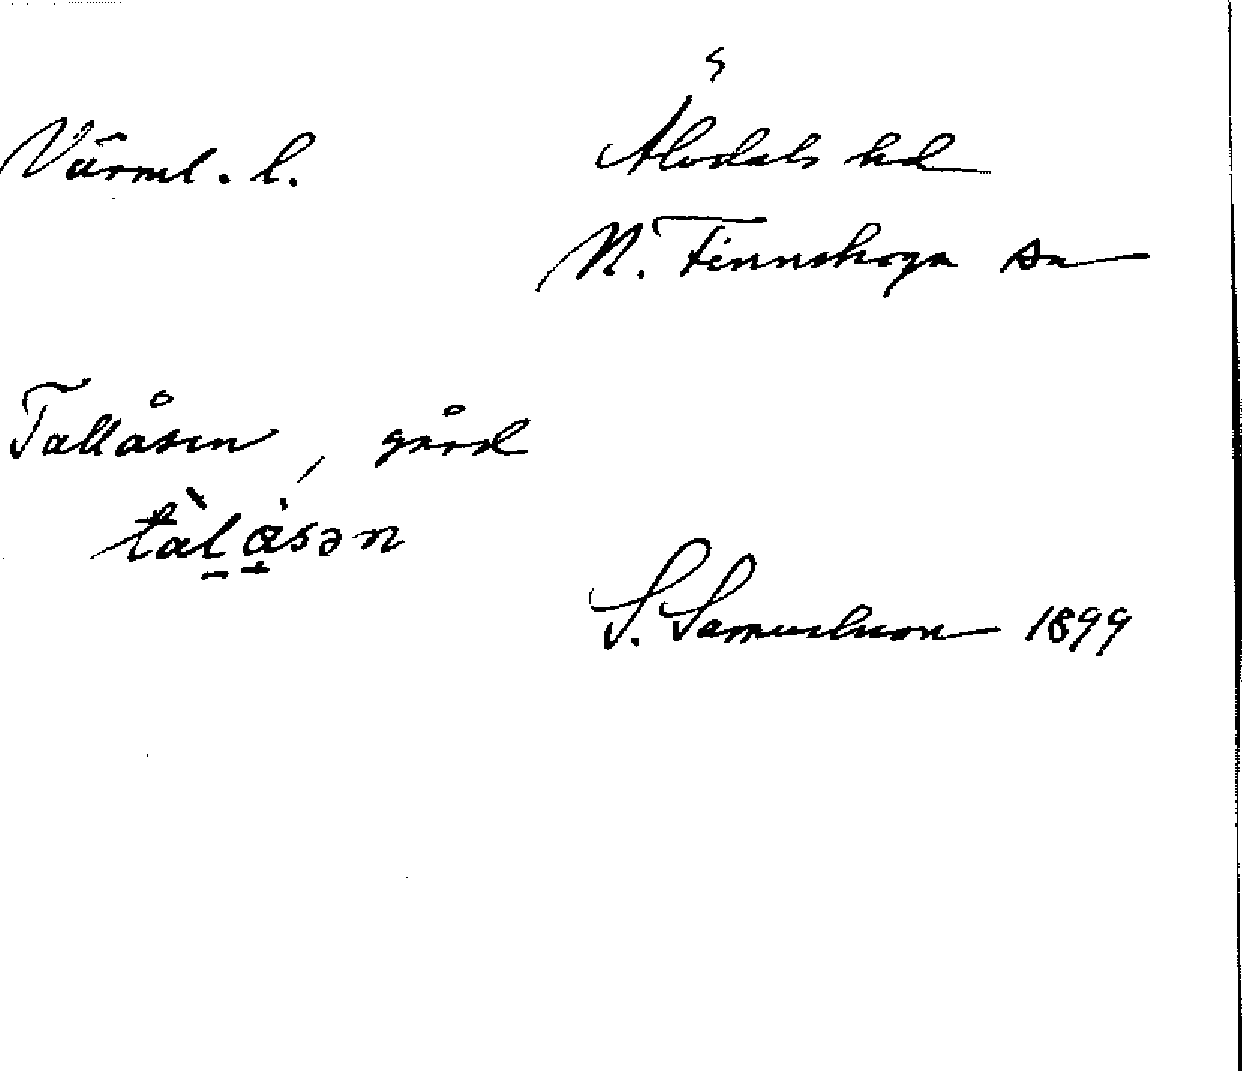 Värml. l. Älvdals hd
N. Finnskoga sn
Tallåsen, gård
tàl̠å̱sən
S. Samuelsson 1899